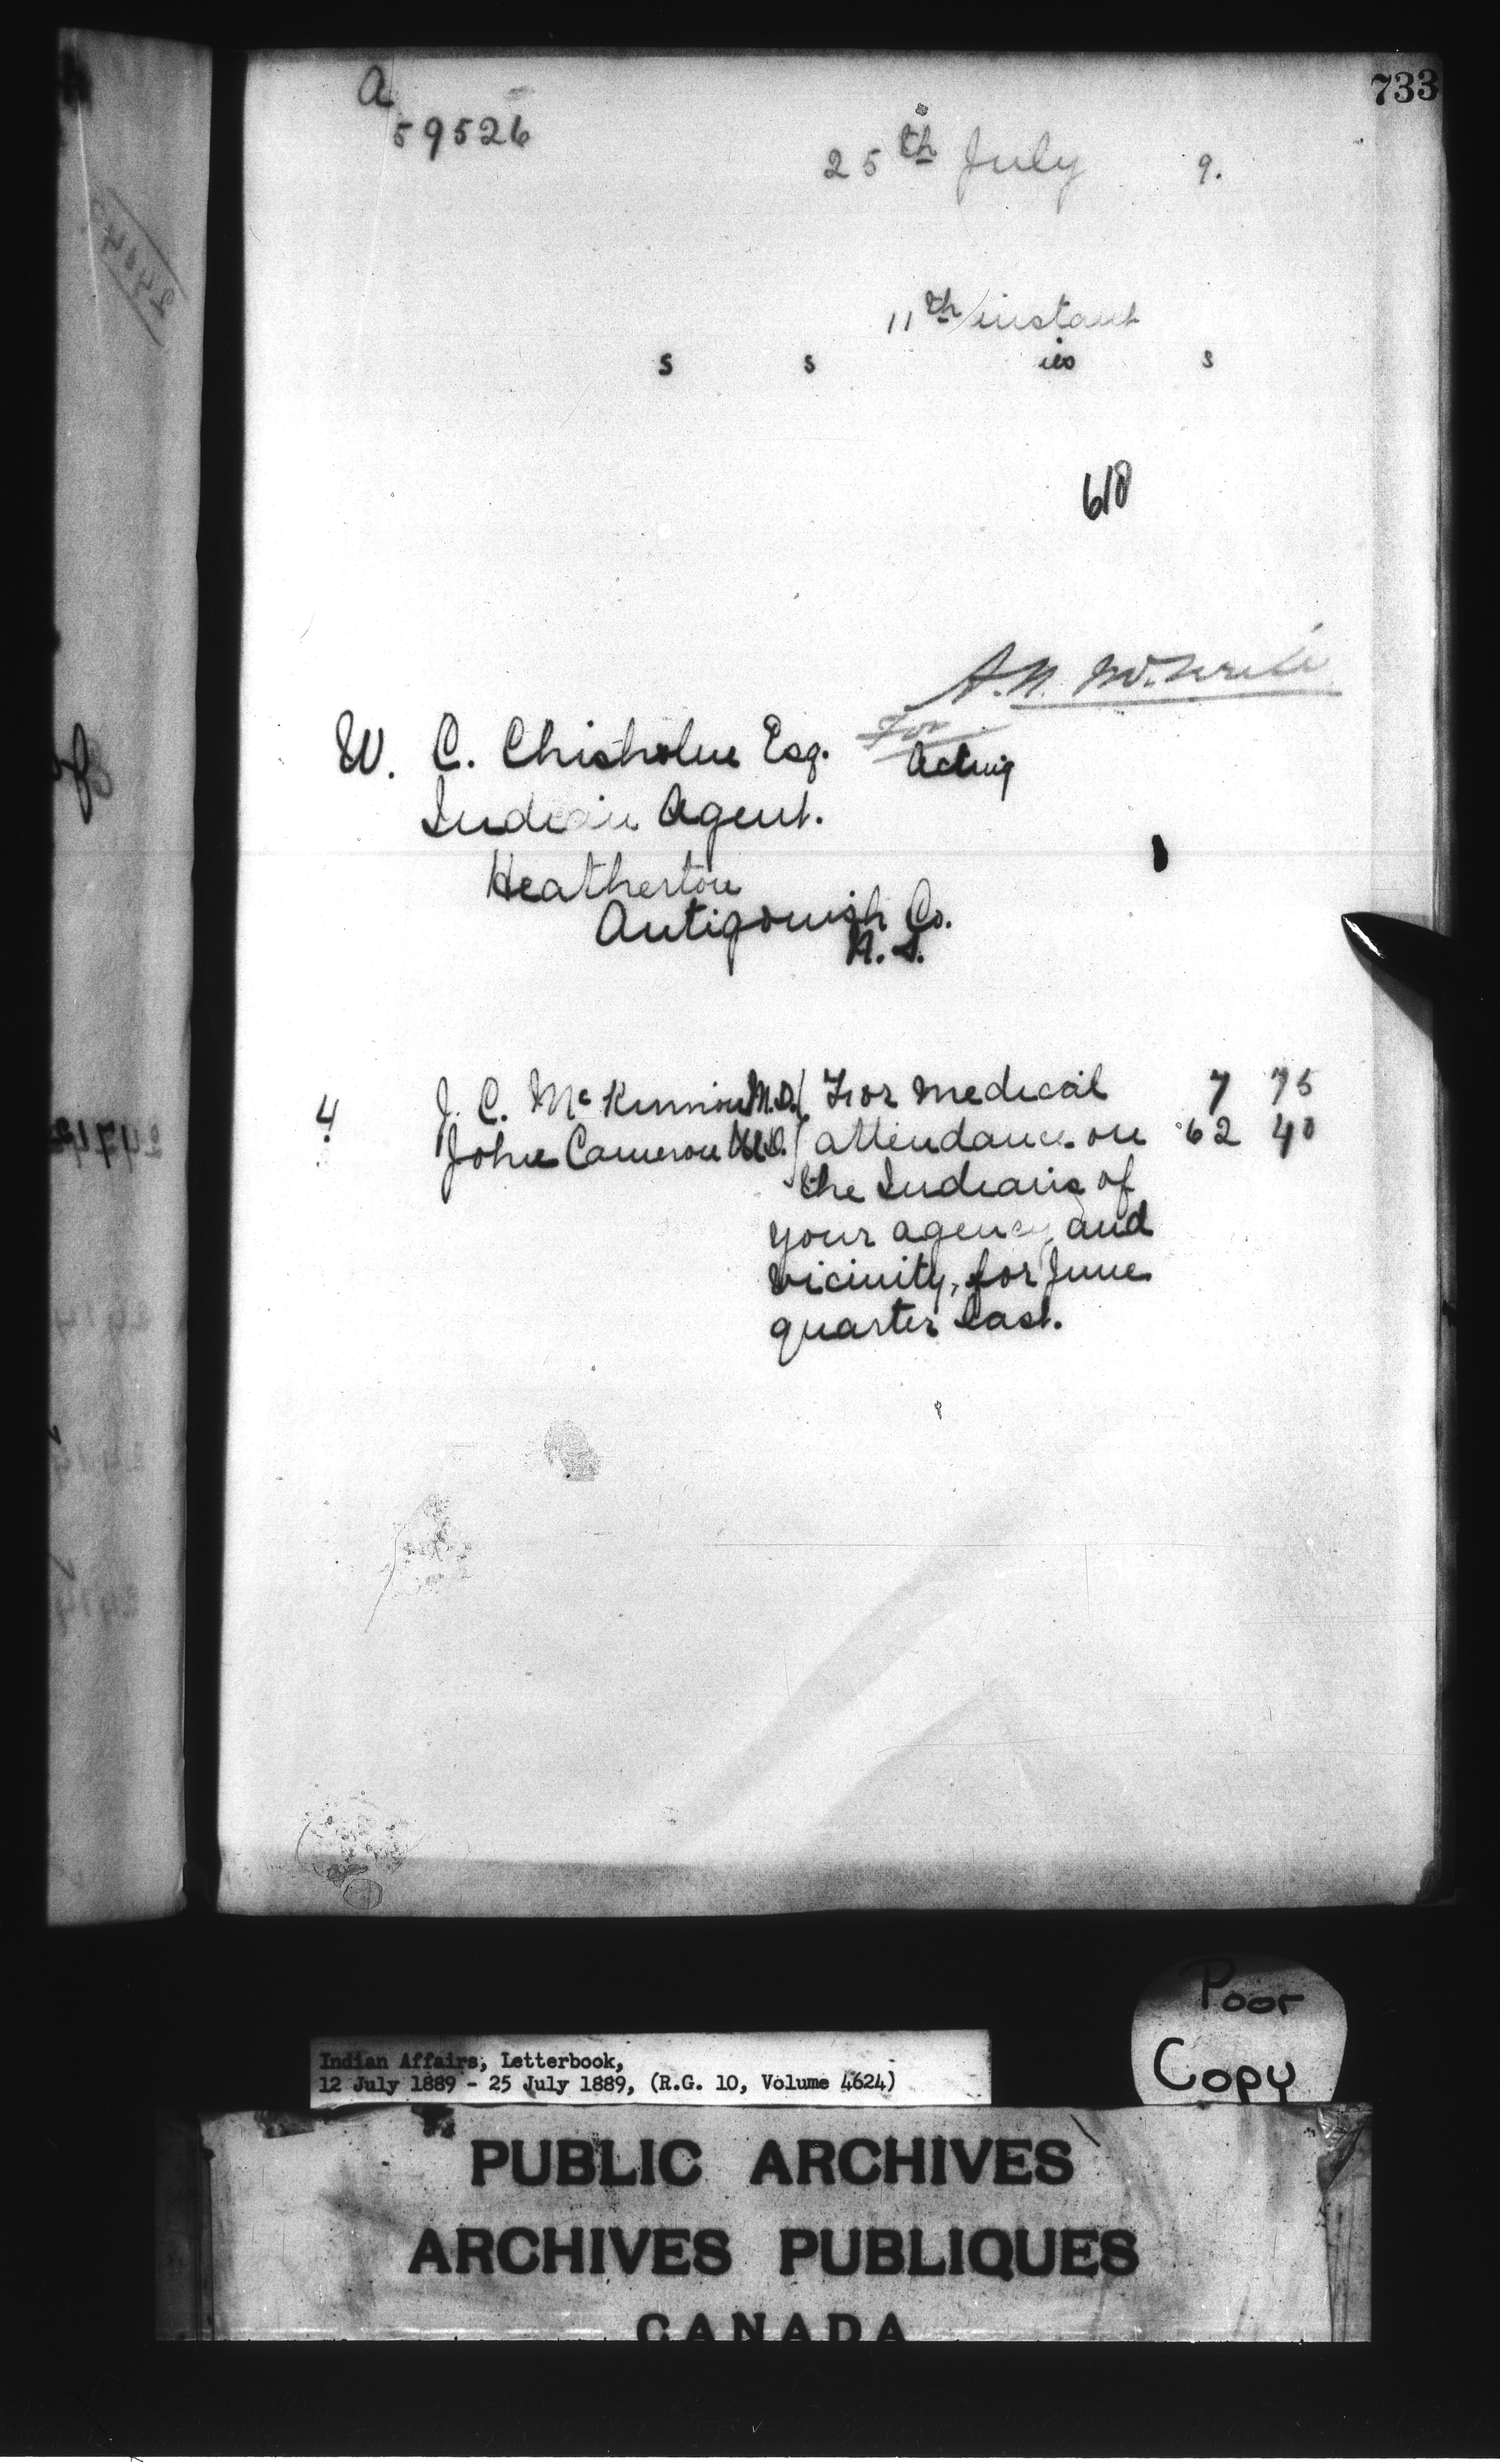 733
a
59526
25th July 9.
11th instant
s s ies s
618
A.N. McNeill
For
W. C. Chisholm Esq. Acting
Indian Agent.
Heatherton
Antigonish Co.
N.S.
4 J. C. McKinnon M.D. For medical 7 75
John Cameron M.D. attendance on 62 40
the Indians of
your agency and
vicinity, for June
quarter last.
Poor
Copy
Indian Affairs, Letterbook,
12 July 1889 - 25 July 1889, (R.G. 10, Volume 4624)
PUBLIC ARCHIVES
ARCHIVES PUBLIQUES
CANADA